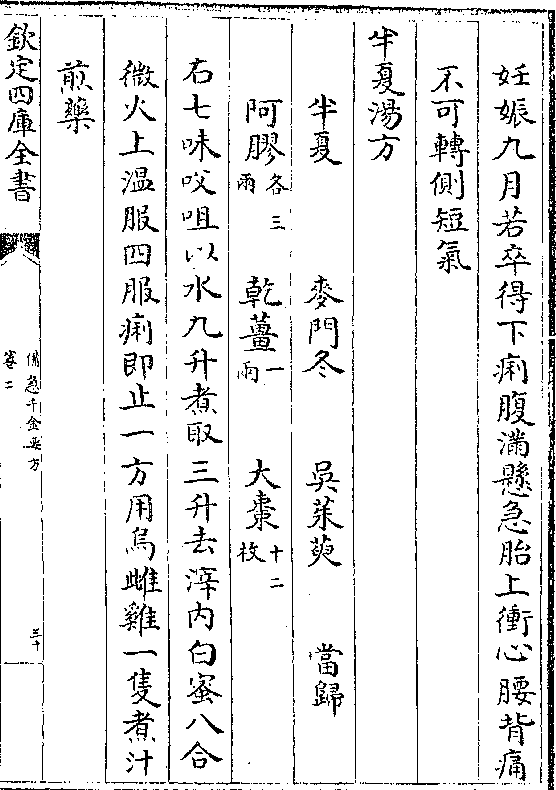 妊娠九月若卒得下痢腹滿懸急胎上衝心腰背痛
不可轉側短氣
半夏湯方
半夏　麥門冬　吳茱萸　當歸
阿膠各三兩　乾薑一兩　大棗十二枚
右七味㕮咀以水九升煮取三升去滓内白蜜八合
微火上溫服四服痢即止一方用烏雌雞一隻煮汁
煎藥
欽定四庫全書
備急千金要方
卷二
三十